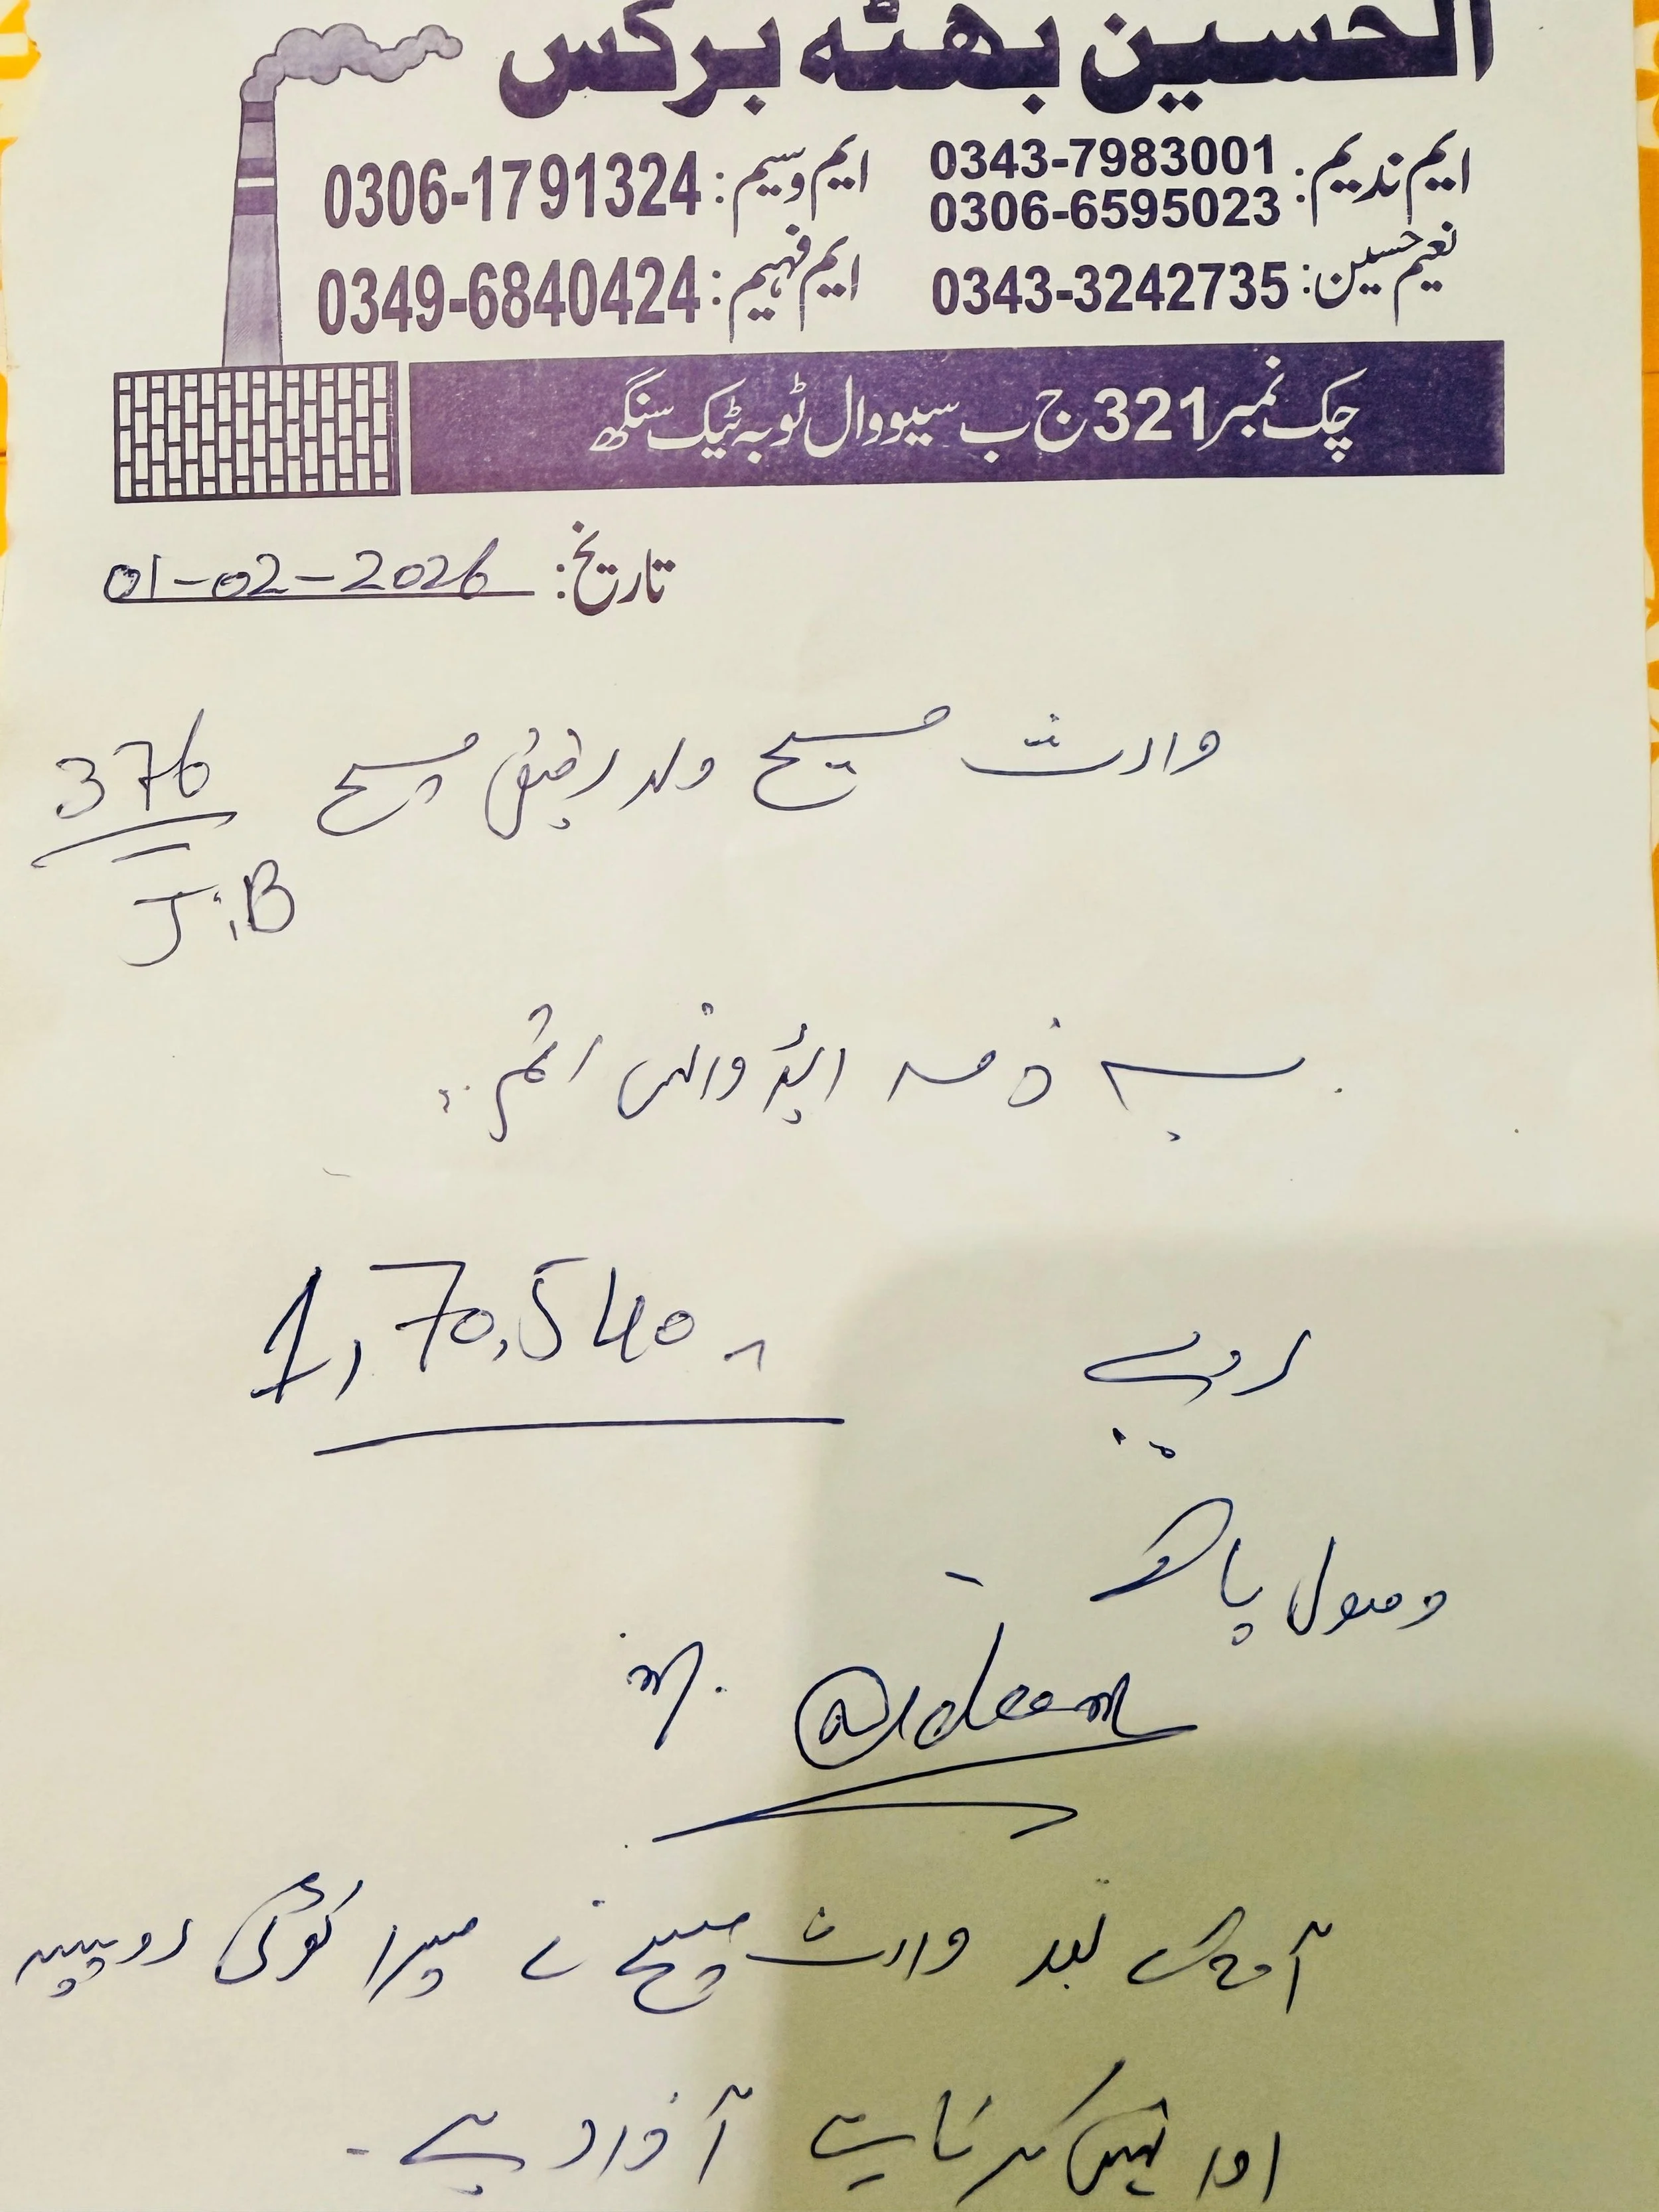 الحسین بھٹہ برکس
ایم ندیم: 0343-7983001
0306-6595023
ایم وسیم: 0306-1791324
نعیم حسین: 0343-3242735
ایم فہیم: 0349-6840424
چک نمبر 321 ج ب سیووال ٹوبہ ٹیک سنگھ
تاریخ: 01-02-2026
وارث مسیح ولد رفیق مسیح 376
J.B
سے ذمہ ایڈوانس رقم
روپے 1,70,540
وصول پائے
m. Nadeem
آج کے بعد وارث مسیح نے میرا کوئی روپیہ
اور نہیں کرنا ہے آزاد ہے۔